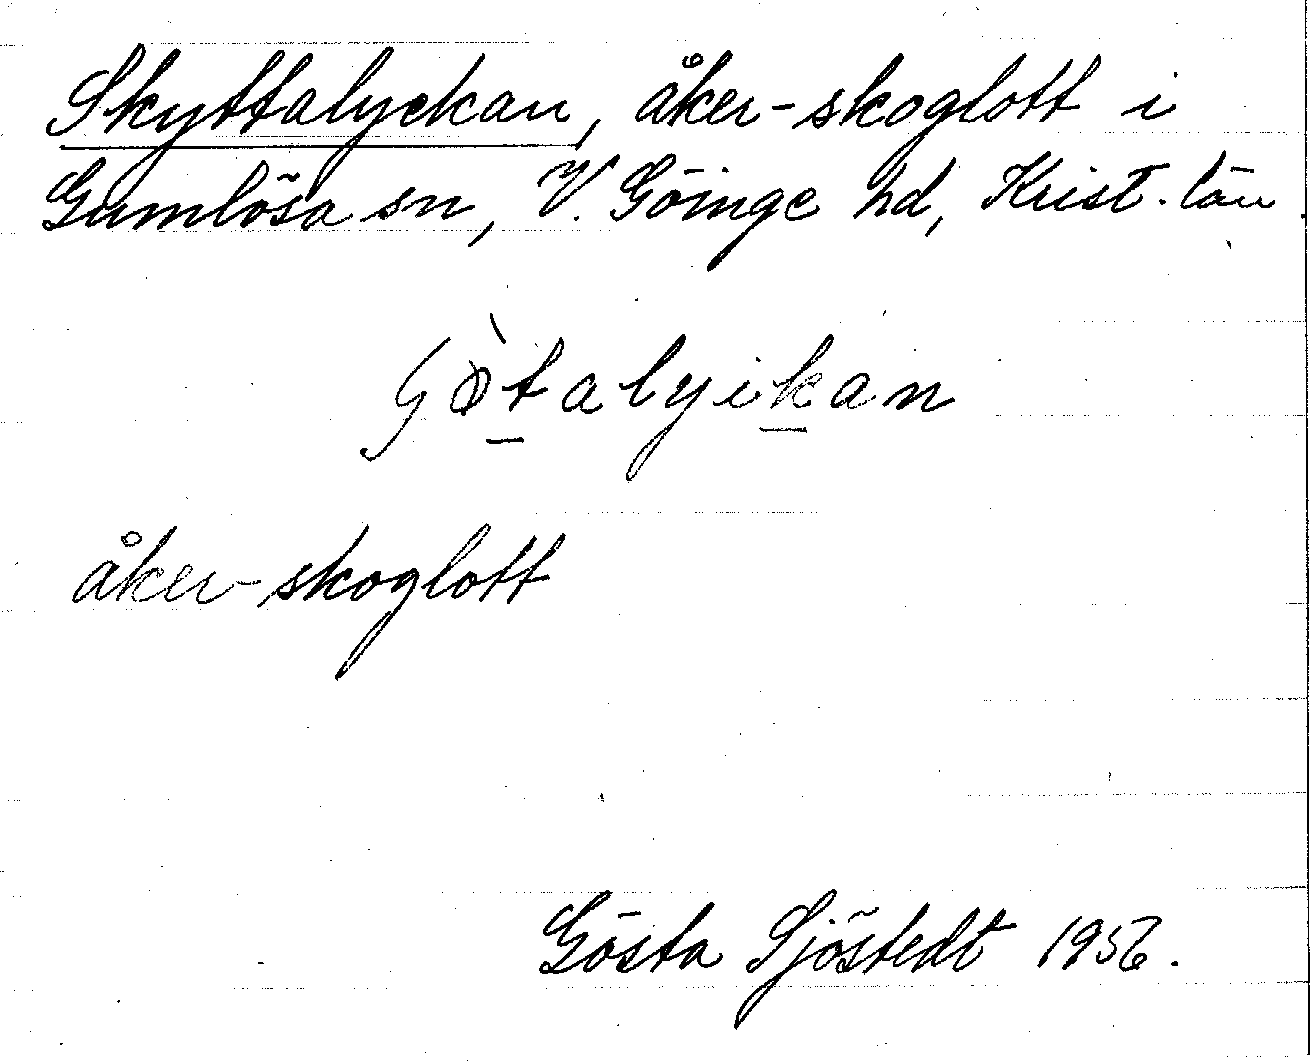 Skyttalyckan, åker-skoglott i
Gumlösa sn, V. Göinge hd, Krist. län.
åker-skoglott
Gösta Sjöstedt 1956.